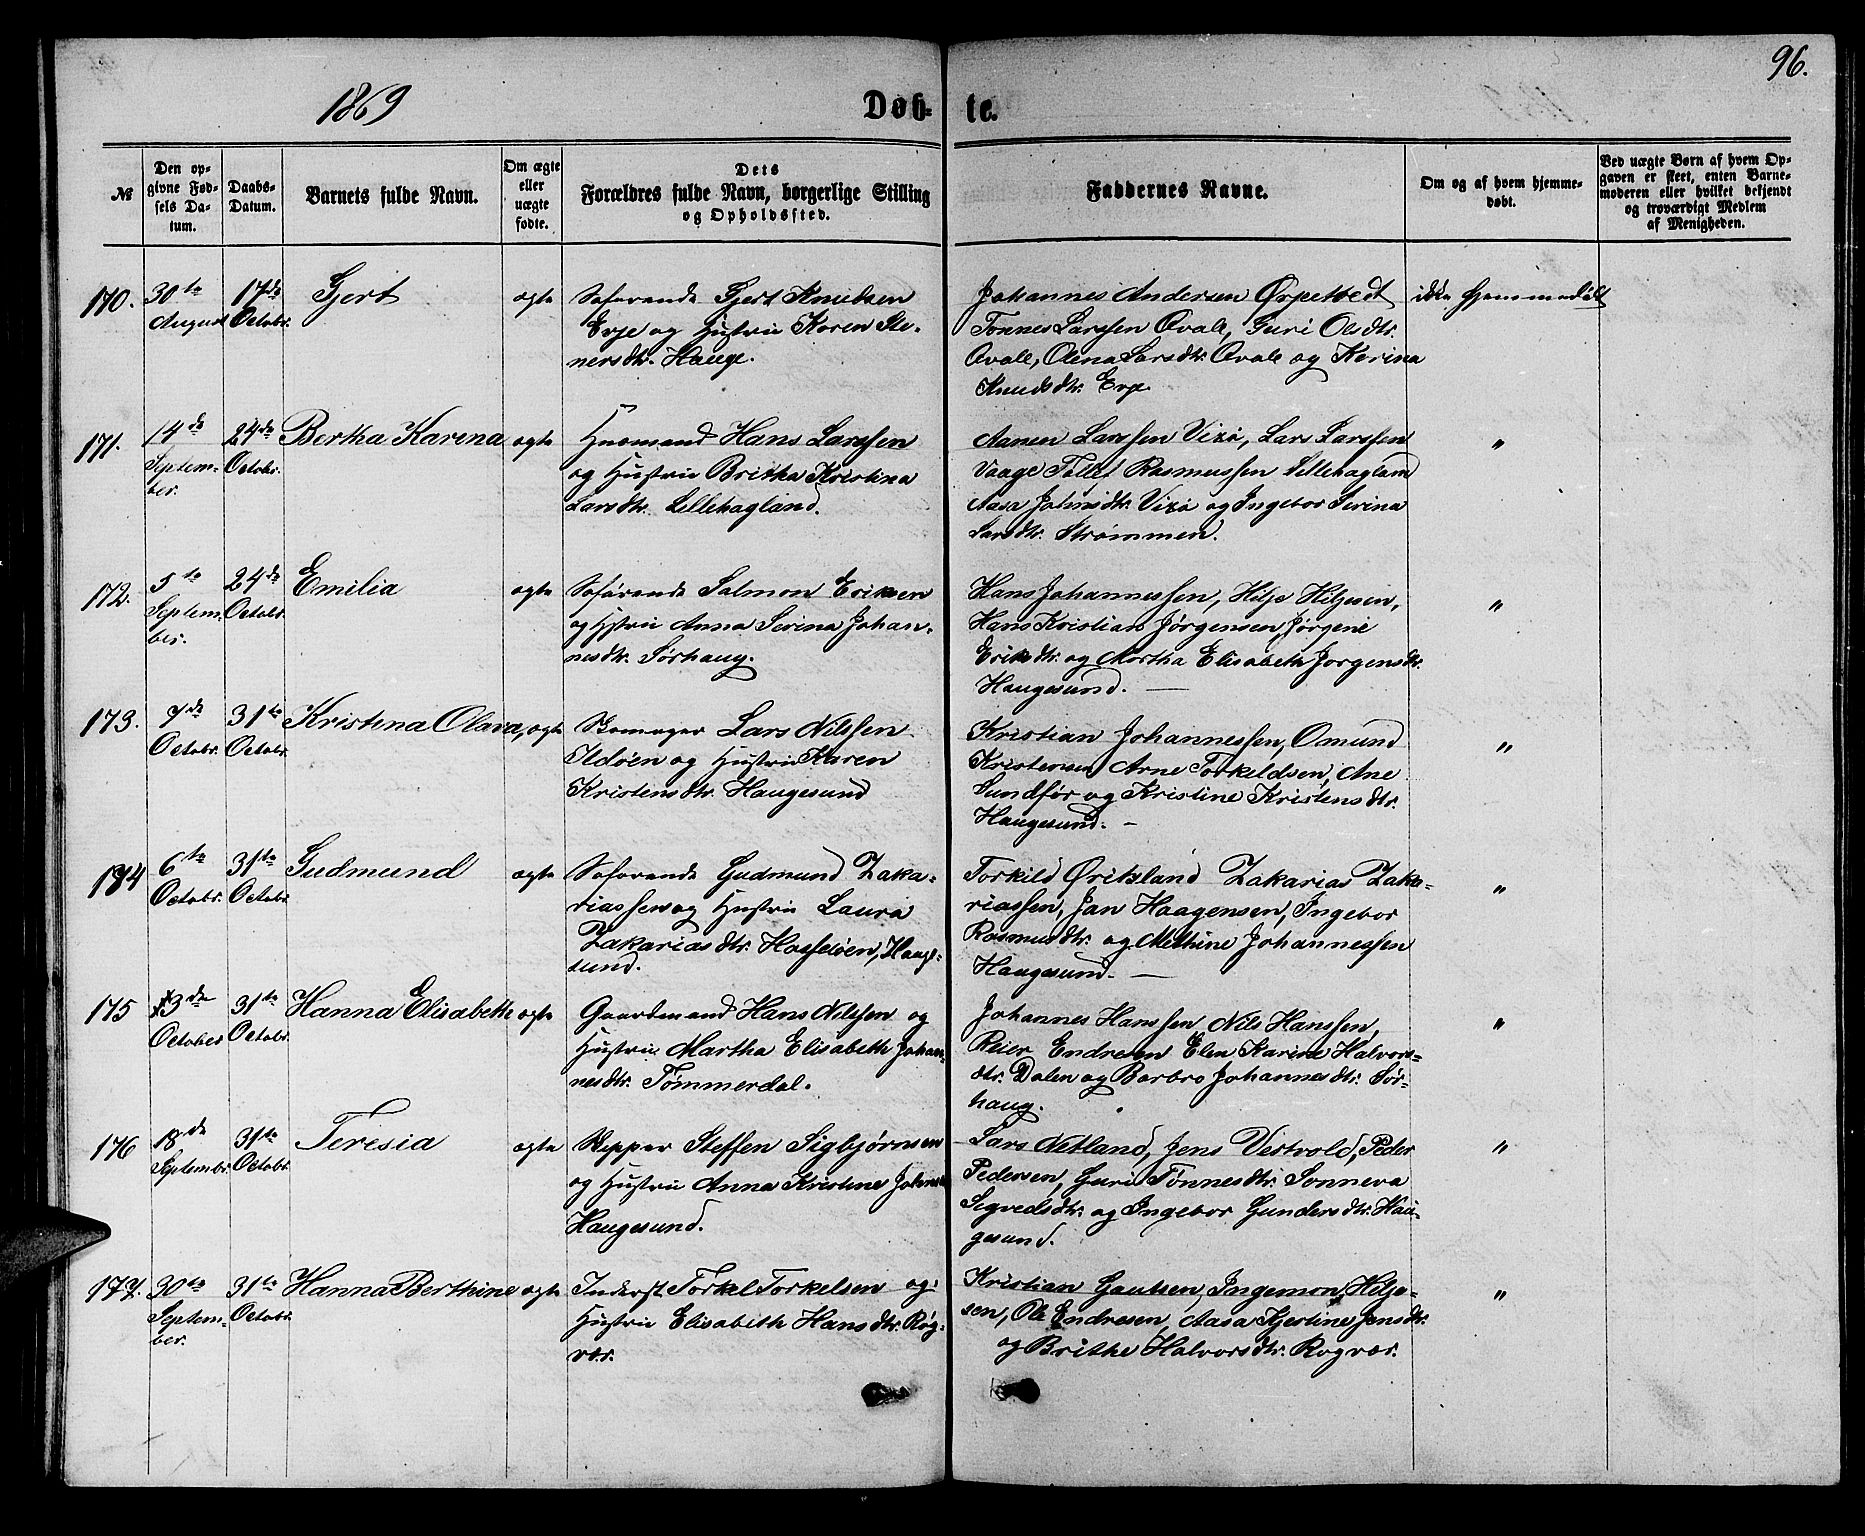 96.
1869
Døb- te.
№
Den op-
givne Fød-
sels Da-
tum.
Daabs-
Datum.
Barnets fulde Navn.
Om ægte
eller
uægte
fødte.
Dets
Forældres fulde Navn, borgerlige Stilling
og Opholdssted.
Faddernes Navne.
Om og af hvem hjemme-
døbt.
Ved uægte Børn af hvem Op-
gaven er skeet, enten Barne-
moderen eller hvilket bekjendt
og troværdigt Medlem
af Menigheden.
170.
30te
August
17de
Octobr.
Gjert
ægte
Søfarende Gjert Knudsen
Erje og Hustru Karen Ste-
nersdtr. Hauge.
Johannes Andersen
Tønnes Larssen Qvale, Guri Olsdtr.
Qvale, Olena Larsdtr. Qvale og Karina
Knudsdtr. Erje
ikke hjemmedøbt
171.
14de
Septem-
ber.
24de
Octobr.
Bertha Karena
ægte
Huusmand Hans Larssen
og Hustru Britha Kristina
Larsdtr. Lillehagland.
Aanen Larssen Vixø, Lars Larssen
Vaage Tollef Rasmussen Lillehagland
Aasa Johnsdtr. Vixø og Ingebor Serina
Larsdtr. Strømmen.
"
172.
5te
Septem-
ber.
24de
Octobr.
Emilia
ægte
Søfarende Salmon Eriksen
og Hstru Anna Serina Johan-
nesdtr. Sørhaug.
Hans Johannessen, Hilje Hiljesen,
Hans Kristian Jørgensen, Jørgine
Eriksdtr. og Martha Elisabeth Jørgensdtr.
Haugesund. —
"
173.
7de
Octobr.
31te
Octobr.
Kristina Olava,
ægte
Skomager Lars Nilssen
Ildøen og Hustru Karen
Kristensdtr. Haugesund
Kristian Johannessen, Omund
Kristensen, Arne Torkeldsen, Ane
Sundfør og Kristine Kristensdtr.
Haugesund. —
"
174
6te
Octobr.
31te
Octobr.
Gudmund
ægte
Søfarende Gudmund Zaka-
riassen og Hustru Laura
Zakariasdtr. Hasseløen, Hauge-
sund.
Torkild Øritsland Zakarias Zaka-
riassen, Jan Haagensen, Ingebor
Rasmusdtr. og Methine Johannessen
Haugesund. —
"
175
3de
October
31te
Octobr.
Hanna Elisabeth
ægte
Gaardmand Hans Nilssen og
Hustru Martha Elisabeth Johan-
nesdtr. Tømmerdal.
Johannes Hanssen, Nils Hanssen,
Reier Endresen Elen Karine Halvors-
dtr. Dalen og Barbro Johannesdtr. Sør-
haug.
"
176
18de
Septembr.
31te
Octobr.
Teresia
ægte
Skipper Steffen Sigbjørnsen
og Hustru Anna Kristine
Haugesund.
Lars Netland, Jens Vestvold, Peder
Pedersen, Guri Tønnesdtr. Sønneva
Segvedsdtr. og Ingebor Gundersdtr. Hau-
gesund.
"
177.
30te
Septem-
ber.
31te
Octobr.
Hanna Berthine
ægte
Inderst Torkel Torkelsen og
Hustru Elisabeth Hansdtr. Røg-
vær.
Kristian Gautsen, Ingemon Hilje-
sen, Ole Endresen, Aasa Kjestine Jensdtr.
og Brithe Halvorsdtr. Røgvær.
"